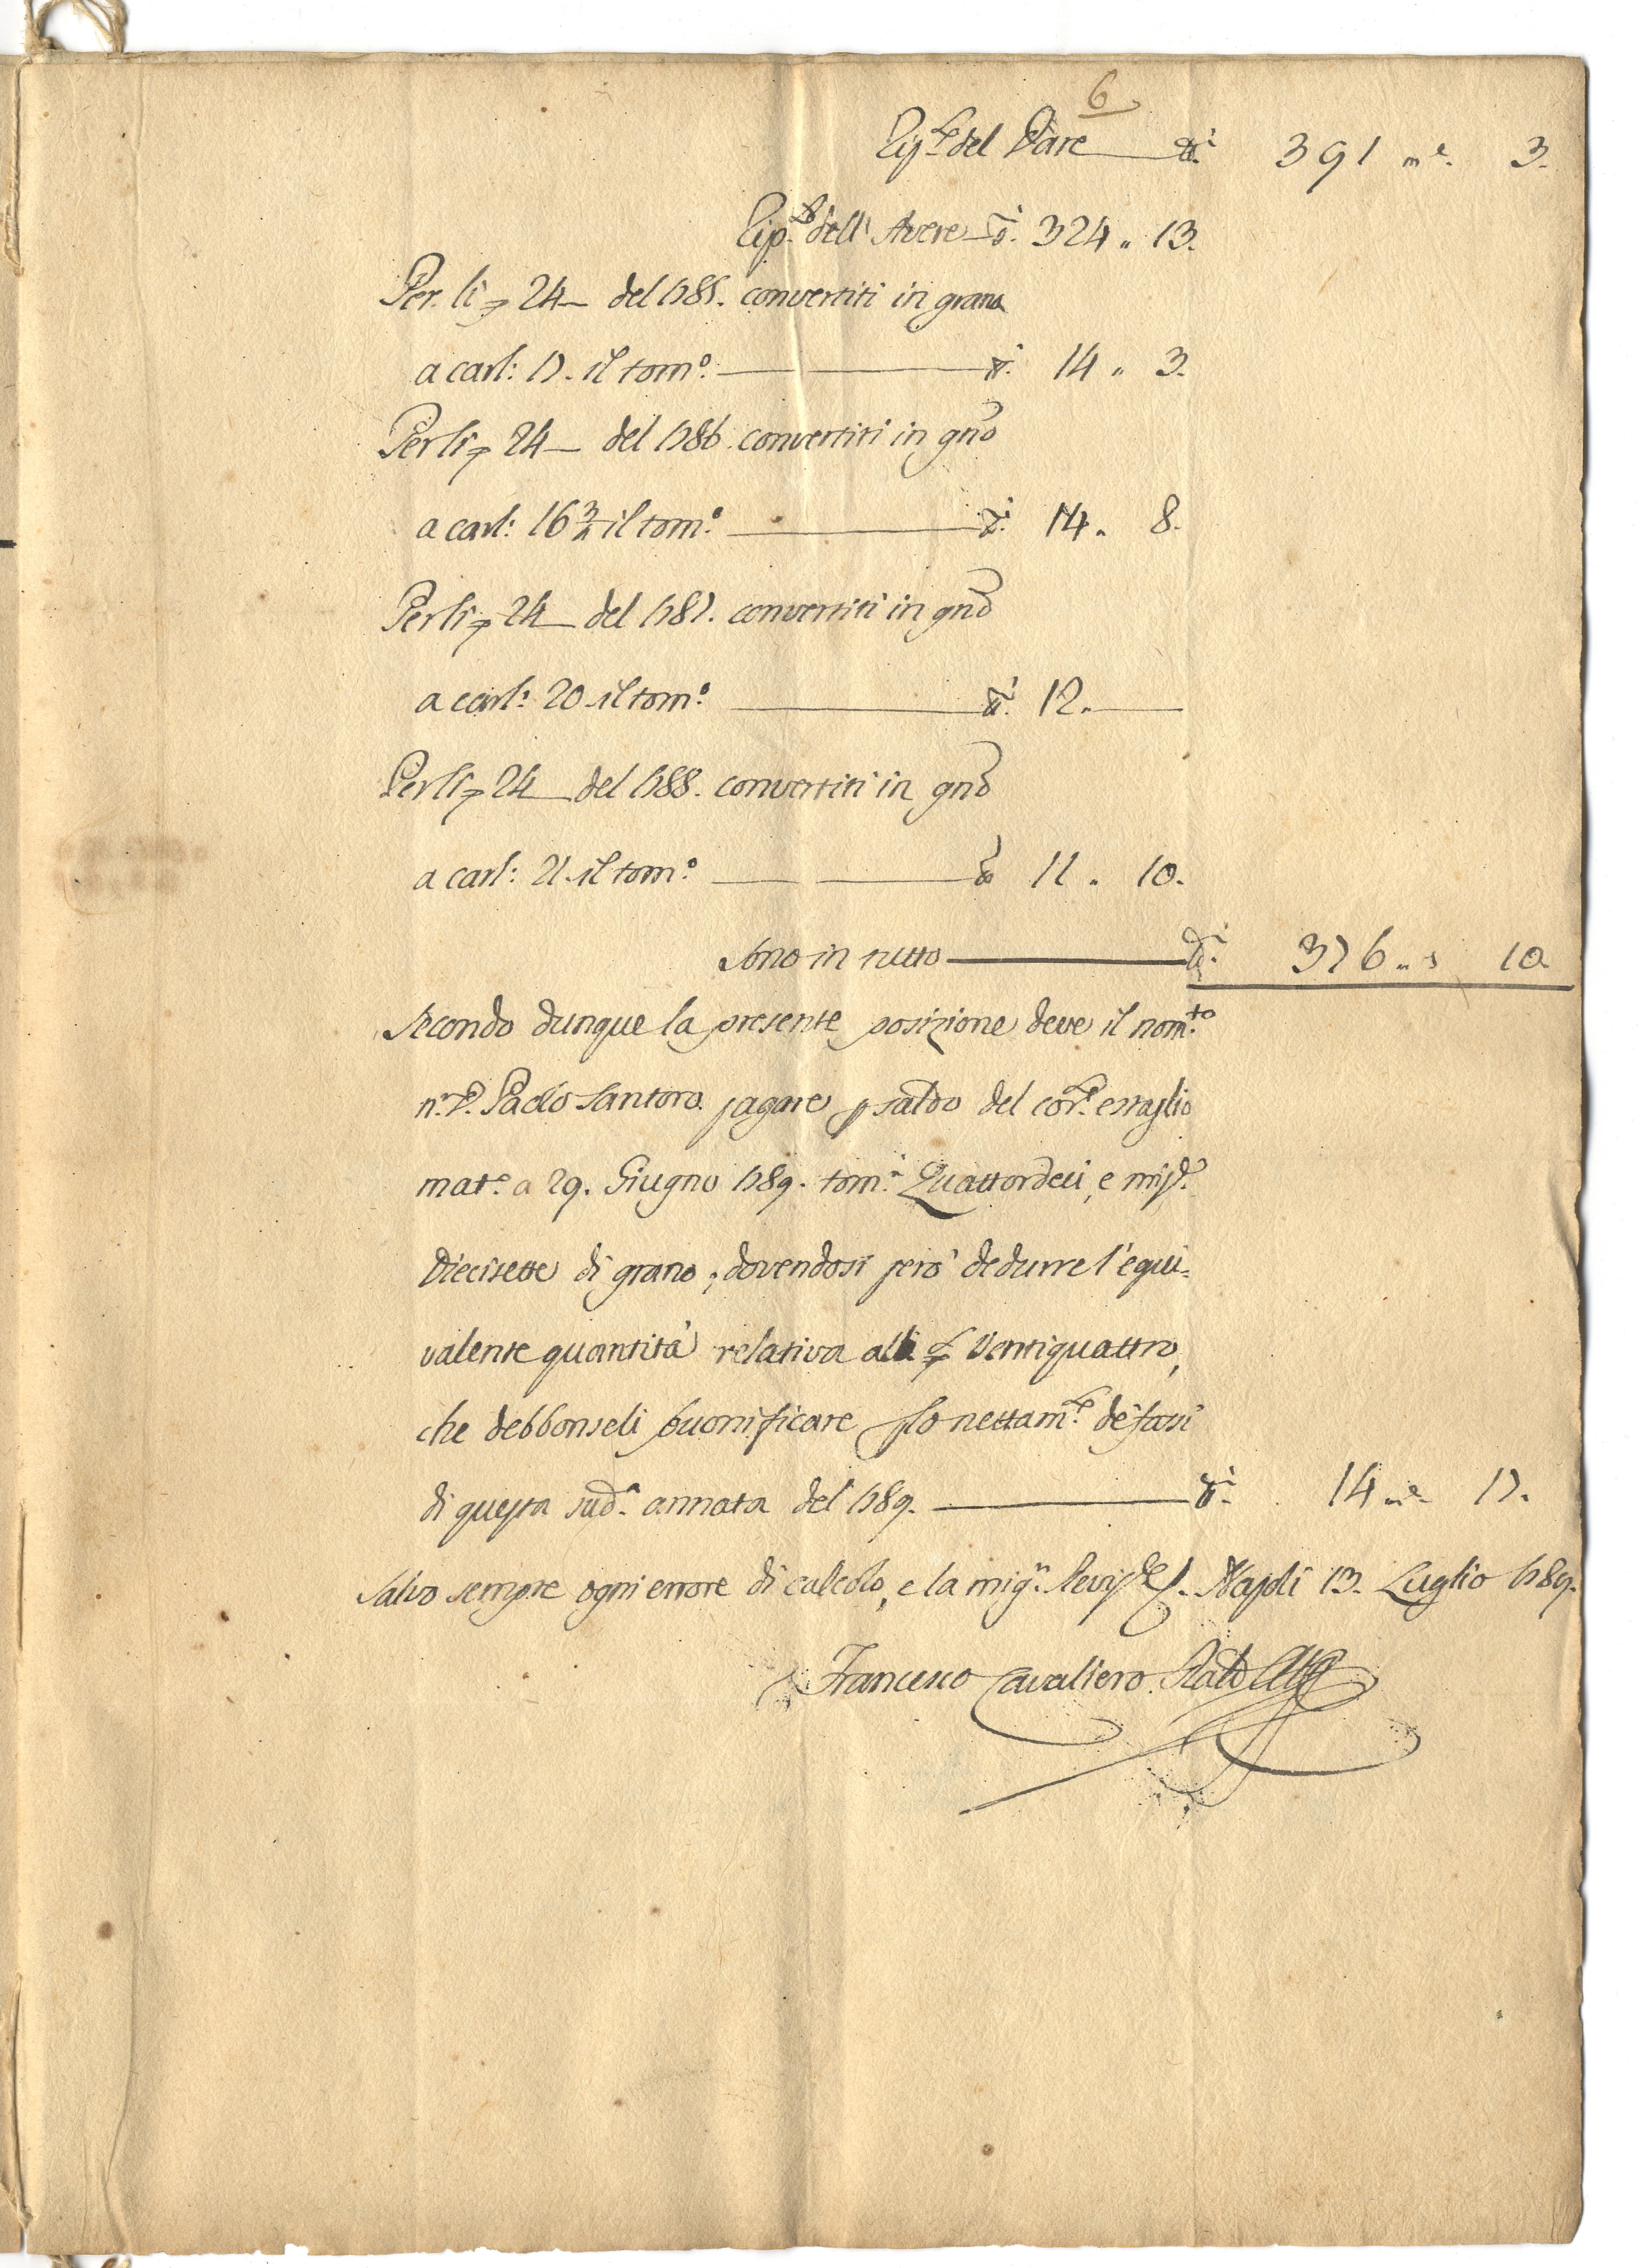 6
Rip.te del Dare t.i 391 m.e 3.
Rip.to dell' Avere t.i 324 " 13.
Per li 24 — del 1785. convertiti in grano
a carl: 17. il tom.o t.i 14 " 3.
Per li 24 — del 1786 convertiti in gño
a carl: 16 3/4 il tom.o t.i 14 " 8.
Per li 24 — del 1787. convertiti in gño
a carl: 20 il tom.o t.i 12. —
Per li 24 — del 1788. convertiti in gño
a carl: 21. il tom.o t.i 11 " 10.
Sono in tutto t.i 376 " 10
Secondo dunque la presente posizione deve il nom.to
Paolo Santoro pagare p saldo del cor.te estaglio
mat.o a 29. Giugno 1789. tom.a Quattordeci, e mis.e
Diecisette di grano; dovendosi però dedurre l'equi=
valente quantità relativa alli Ventiquattro,
che debbonseli buonificare nettam.te de' pasi
di questa sud.a annata del 1789. t.i 14 m.e 17.
Salvo sempre ogni errore di calcolo, e la mig.r Revis.e Napoli 13. Luglio 1789.
Francesco Cavaliero